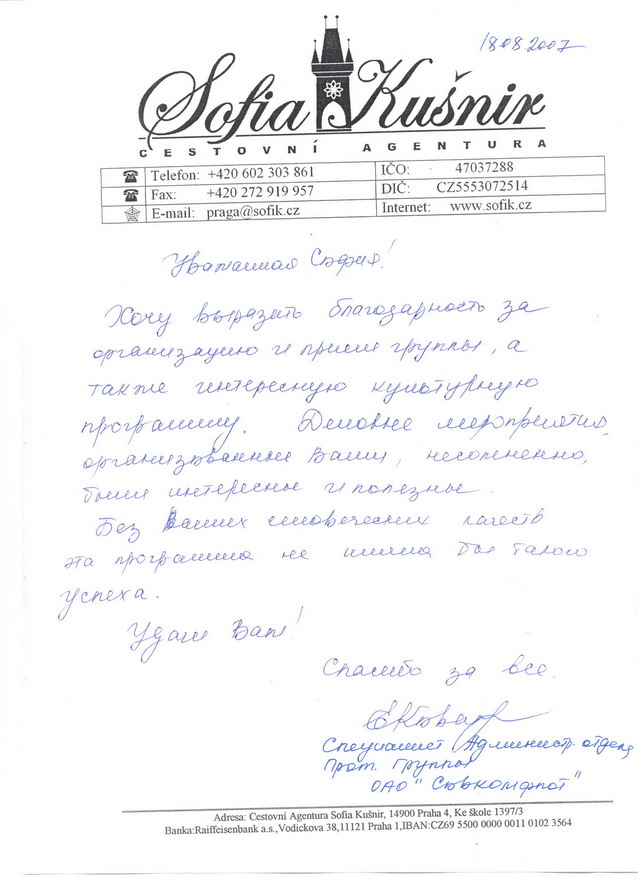 18.08.2007
Sofia Kušnir
CESTOVNÍ AGENTURA
Telefon: +420 602 303 861 IČO: 47037288
Fax: +420 272 919 957 DIČ: CZ5553072514
E-mail: praga@sofik.cz Internet: www.sofik.cz
Уважаемая София!
Хочу выразить благодарность за
организацию и прием группы, а
также интересную культурную
программу. Деловые мероприятия,
организованные Вами, несомненно,
были интересные и полезные.
Без Ваших человеческих качеств
эта программа не имела бы такого
успеха.
Удачи Вам!
Спасибо за все.
Специалист Администр. отдела
Прот. группы
ОАО "Совкомфлот"
Adresa: Cestovní Agentura Sofia Kušnir, 14900 Praha 4, Ke škole 1397/3
Banka:Raiffeisenbank a.s.,Vodickova 38,11121 Praha 1,IBAN:CZ69 5500 0000 0011 0102 3564